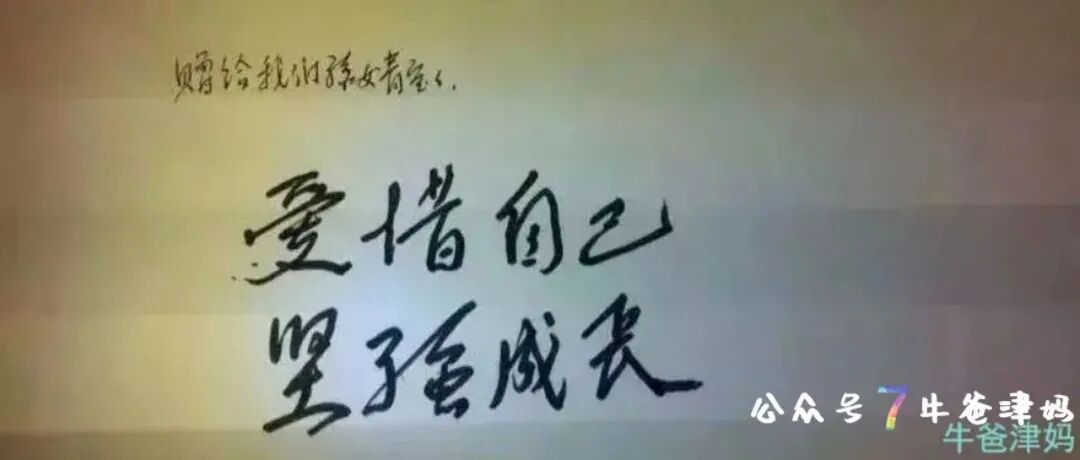 赠给我们孩女青宝：
爱惜自己
坚强成长
公众号7牛爸津妈
牛爸津妈